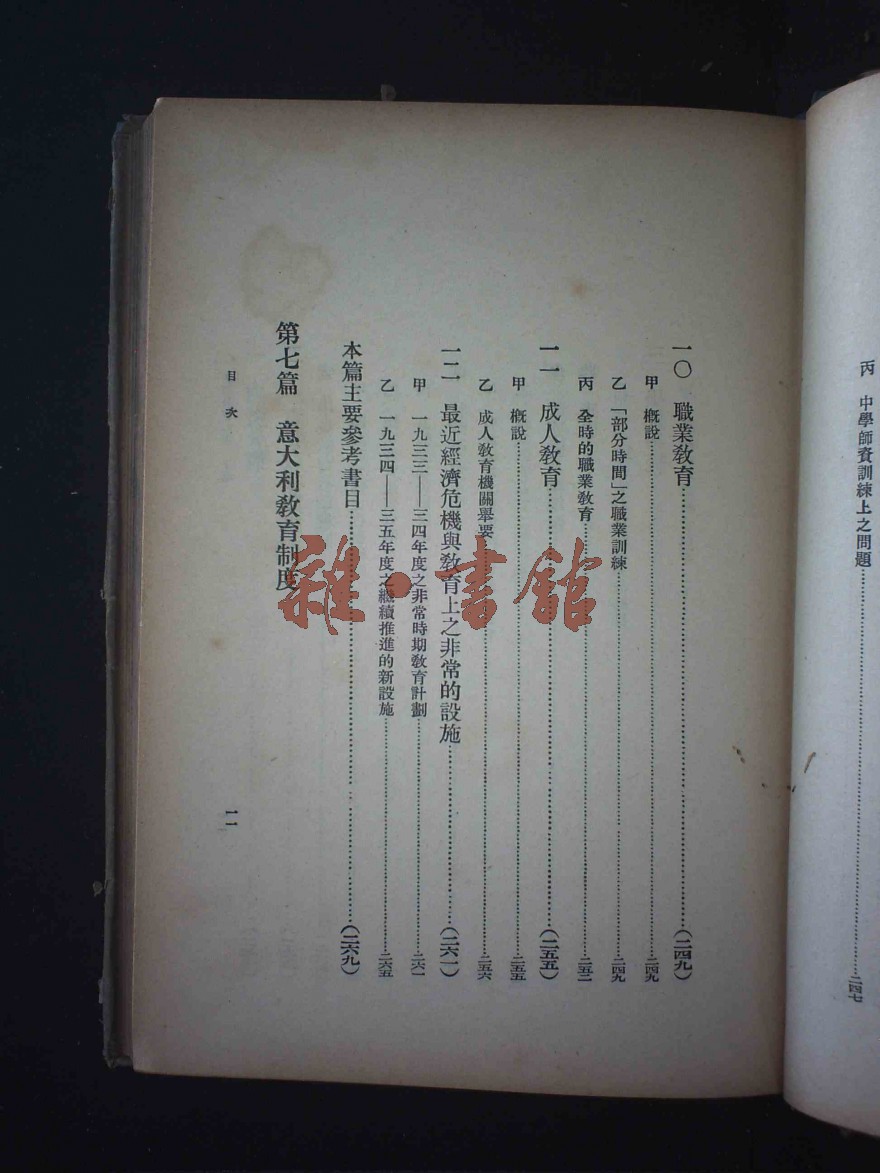 丙 中學師資訓練上之問題……二四七
一〇 職業教育……(二四九)
甲 概說……二四九
乙 「部分時間」之職業訓練……二四九
丙 全時的職業教育……二五二
一一 成人教育……(二五五)
甲 概說……二五五
乙 成人教育機關舉要……二五六
一二 最近經濟危機與教育上之非常的設施……(二六一)
甲 一九三三——三四年度之非常時期教育計劃……二六一
乙 一九三四——三五年度之繼續推進的新設施……二六五
本篇主要參考書目……(二六九)
第七篇 意大利教育制度
目次
一一
雜·書館